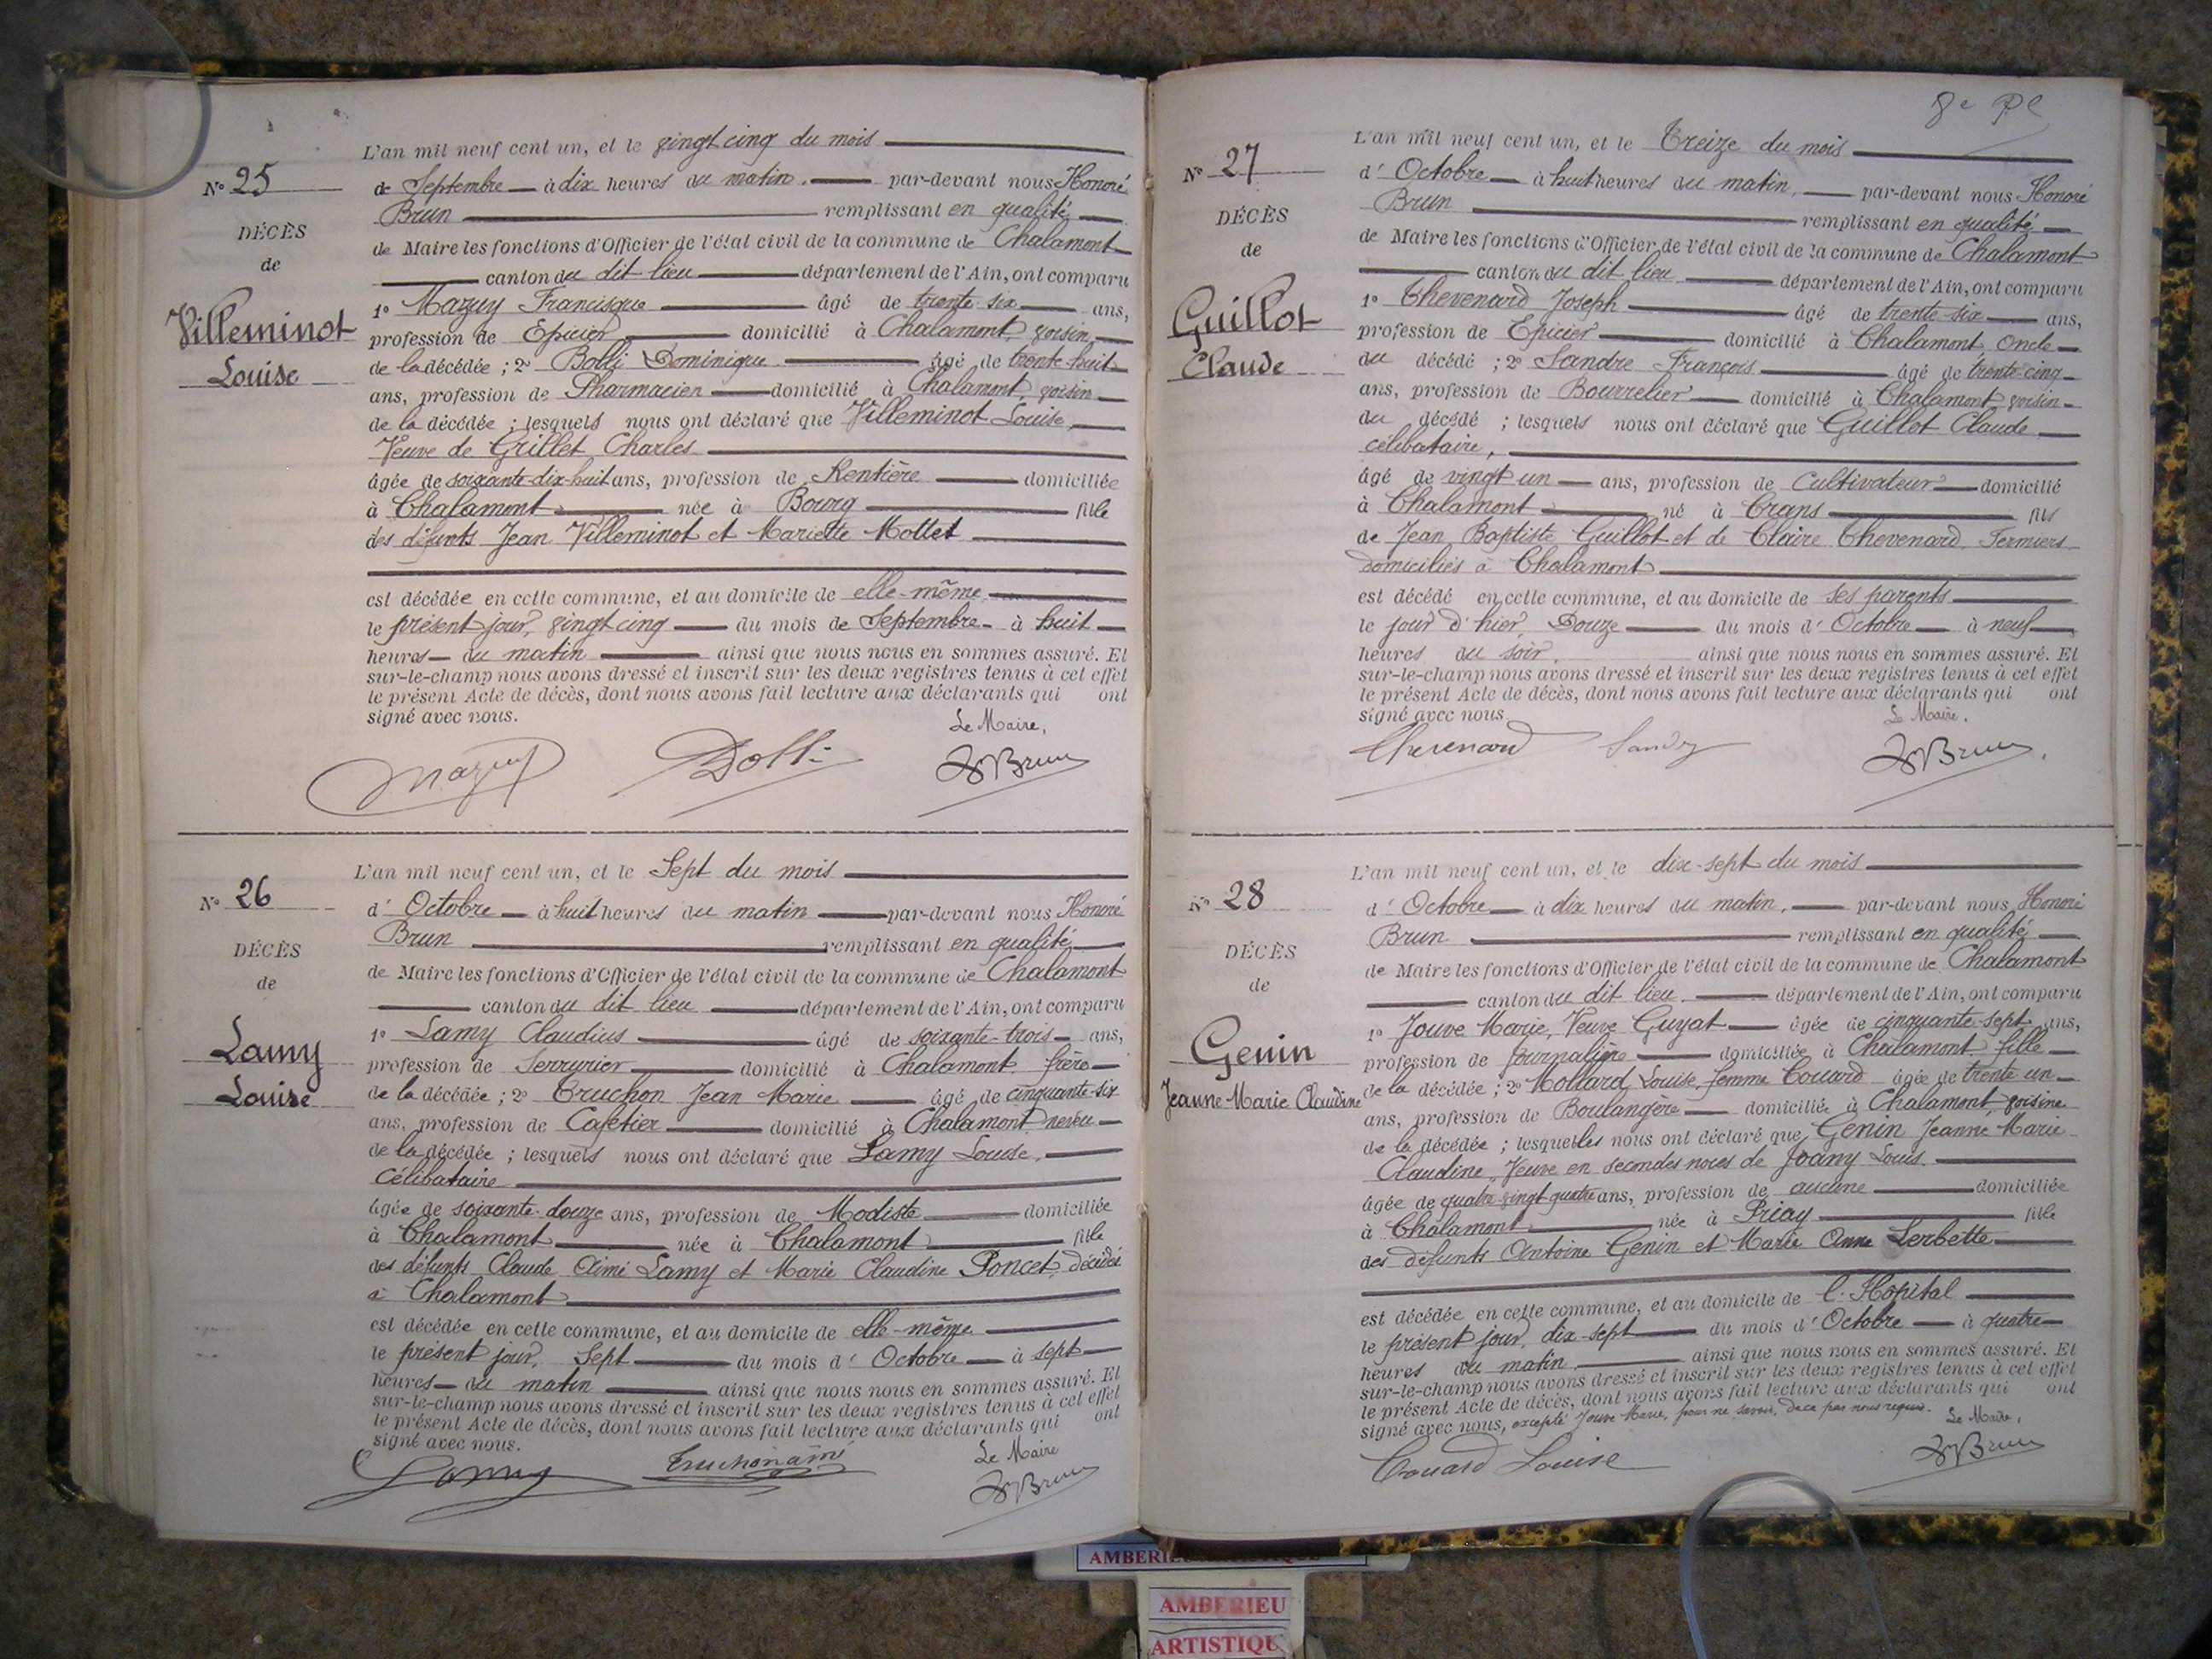 L'an mil neuf cent un, et le vingt cinq du mois
N° 25
de Septembre à dix heures du matin. par-devant nous Honoré
Brun remplissant en qualité
DÉCÈS
de Maire les fonctions d'Officier de l'état civil de la commune de Chalamont
de
canton du dit lieu département de l'Ain, ont comparu
Villeminot
Louise
1° Mazuy Francisque âgé de trente-six ans,
profession de Epicier domicilié à Chalamont, voisin
de la décédée ; 2° Bolli Dominique âgé de trente-huit
ans, profession de Pharmacien domicilié à Chalamont, voisin
de la décédée ; lesquels nous ont déclaré que Villeminot Louise,
Veuve de Grillet Charles
âgée de soixante-dix-huit ans, profession de Rentière domiciliée
à Chalamont née à Bourg fille
des défunts Jean Villeminot et Mariette Mottet
est décédée en cette commune, et au domicile de elle-même
le présent jour, vingt cinq du mois de Septembre à huit
heures du matin ainsi que nous nous en sommes assuré. Et
sur-le-champ nous avons dressé et inscrit sur les deux registres tenus à cet effet
le présent Acte de décès, dont nous avons fait lecture aux déclarants qui ont
signé avec nous.
Le Maire,
Mazuy Bolli HBrun
L'an mil neuf cent un, et le Sept du mois
N° 26
d' Octobre à huit heures du matin par-devant nous Honoré
Brun remplissant en qualité
DÉCÈS
de Maire les fonctions d'Officier de l'état civil de la commune de Chalamont
de
canton du dit lieu département de l'Ain, ont comparu
Lamy
Louise
1° Lamy Claudius âgé de soixante-trois ans,
profession de Serrurier domicilié à Chalamont frère
de la décédée ; 2° Truchon Jean Marie âgé de cinquante-six
ans, profession de Cafetier domicilié à Chalamont neveu
de la décédée ; lesquels nous ont déclaré que Lamy Louise,
Célibataire
âgée de soixante-douze ans, profession de Modiste domiciliée
à Chalamont née à Chalamont fille
des défunts Claude Aimé Lamy et Marie Claudine Poncet, décédés
à Chalamont
est décédée en cette commune, et au domicile de elle-même
le présent jour, Sept du mois d' Octobre à sept
heures du matin ainsi que nous nous en sommes assuré. Et
sur-le-champ nous avons dressé et inscrit sur les deux registres tenus à cet effet
le présent Acte de décès, dont nous avons fait lecture aux déclarants qui ont
signé avec nous.
Le Maire
Lamy Truchon aîné HBrun
L'an mil neuf cent un, et le Treize du mois
N° 27
d' Octobre à huit heures du matin, par-devant nous Honoré
Brun remplissant en qualité
DÉCÈS
de Maire les fonctions d'Officier de l'état civil de la commune de Chalamont
de
canton du dit lieu département de l'Ain, ont comparu
Guillot
Claude
1° Thevenard Joseph âgé de trente-six ans,
profession de Epicier domicilié à Chalamont Oncle
du décédé ; 2° Sandre François âgé de trente-cinq
ans, profession de Bourrelier domicilié à Chalamont voisin
du décédé ; lesquels nous ont déclaré que Guillot Claude
célibataire,
âgé de vingt un ans, profession de Cultivateur domicilié
à Chalamont né à Crans fils
de Jean Baptiste Guillot et de Claire Thevenard Fermiers
domiciliés à Chalamont
est décédé en cette commune, et au domicile de ses parents
le jour d'hier, Douze du mois d' Octobre à neuf
heures du soir, ainsi que nous nous en sommes assuré. Et
sur-le-champ nous avons dressé et inscrit sur les deux registres tenus à cet effet
le présent Acte de décès, dont nous avons fait lecture aux déclarants qui ont
signé avec nous.
Le Maire.
Thevenard HBrun
L'an mil neuf cent un, et le dix-sept du mois
N° 28
d' Octobre à dix heures du matin, par-devant nous, Honoré
Brun remplissant en qualité
DÉCÈS
de Maire les fonctions d'Officier de l'état civil de la commune de Chalamont
de
canton du dit lieu département de l'Ain, ont comparu
Genin
Jeanne-Marie Claudine
1° Jouve Marie, Veuve Guyat âgée de cinquante-sept ans,
profession de Journalière domiciliée à Chalamont fille
de la décédée ; 2° Mollard Louise femme Couard âgée de trente un
ans, profession de Boulangère domiciliée à Chalamont, voisine
de la décédée ; lesquelles nous ont déclaré que Genin Jeanne Marie
Claudine, Veuve en secondes noces de Joany Louis
âgée de quatre vingt quatre ans, profession de aucune domiciliée
à Chalamont née à Priay fille
des défunts Antoine Genin et Marie Anne Lerbette
est décédée en cette commune, et au domicile de l'Hôpital
le présent jour, dix-sept du mois d' Octobre à quatre
heures du matin ainsi que nous nous en sommes assuré. Et
sur-le-champ nous avons dressé et inscrit sur les deux registres tenus à cet effet
le présent Acte de décès, dont nous avons fait lecture aux déclarants qui ont
signé avec nous, excepté Jouve Marie, pour ne savoir, de ce par nous requis.
Le Maire,
Couard Louise HBrun
AMBERIEU
ARTISTIQU